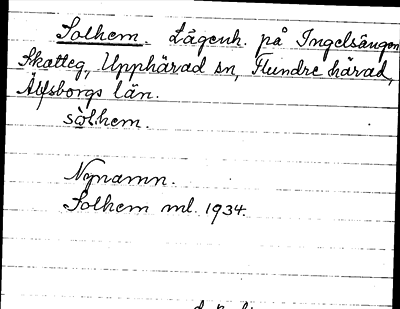 Solhem. Lägenh. på Ingelsängen
Skatteg, Upphärad sn, Flundre härad,
Älfsborgs län.
sòlhem.
Nynamn.
Solhem ml. 1934.